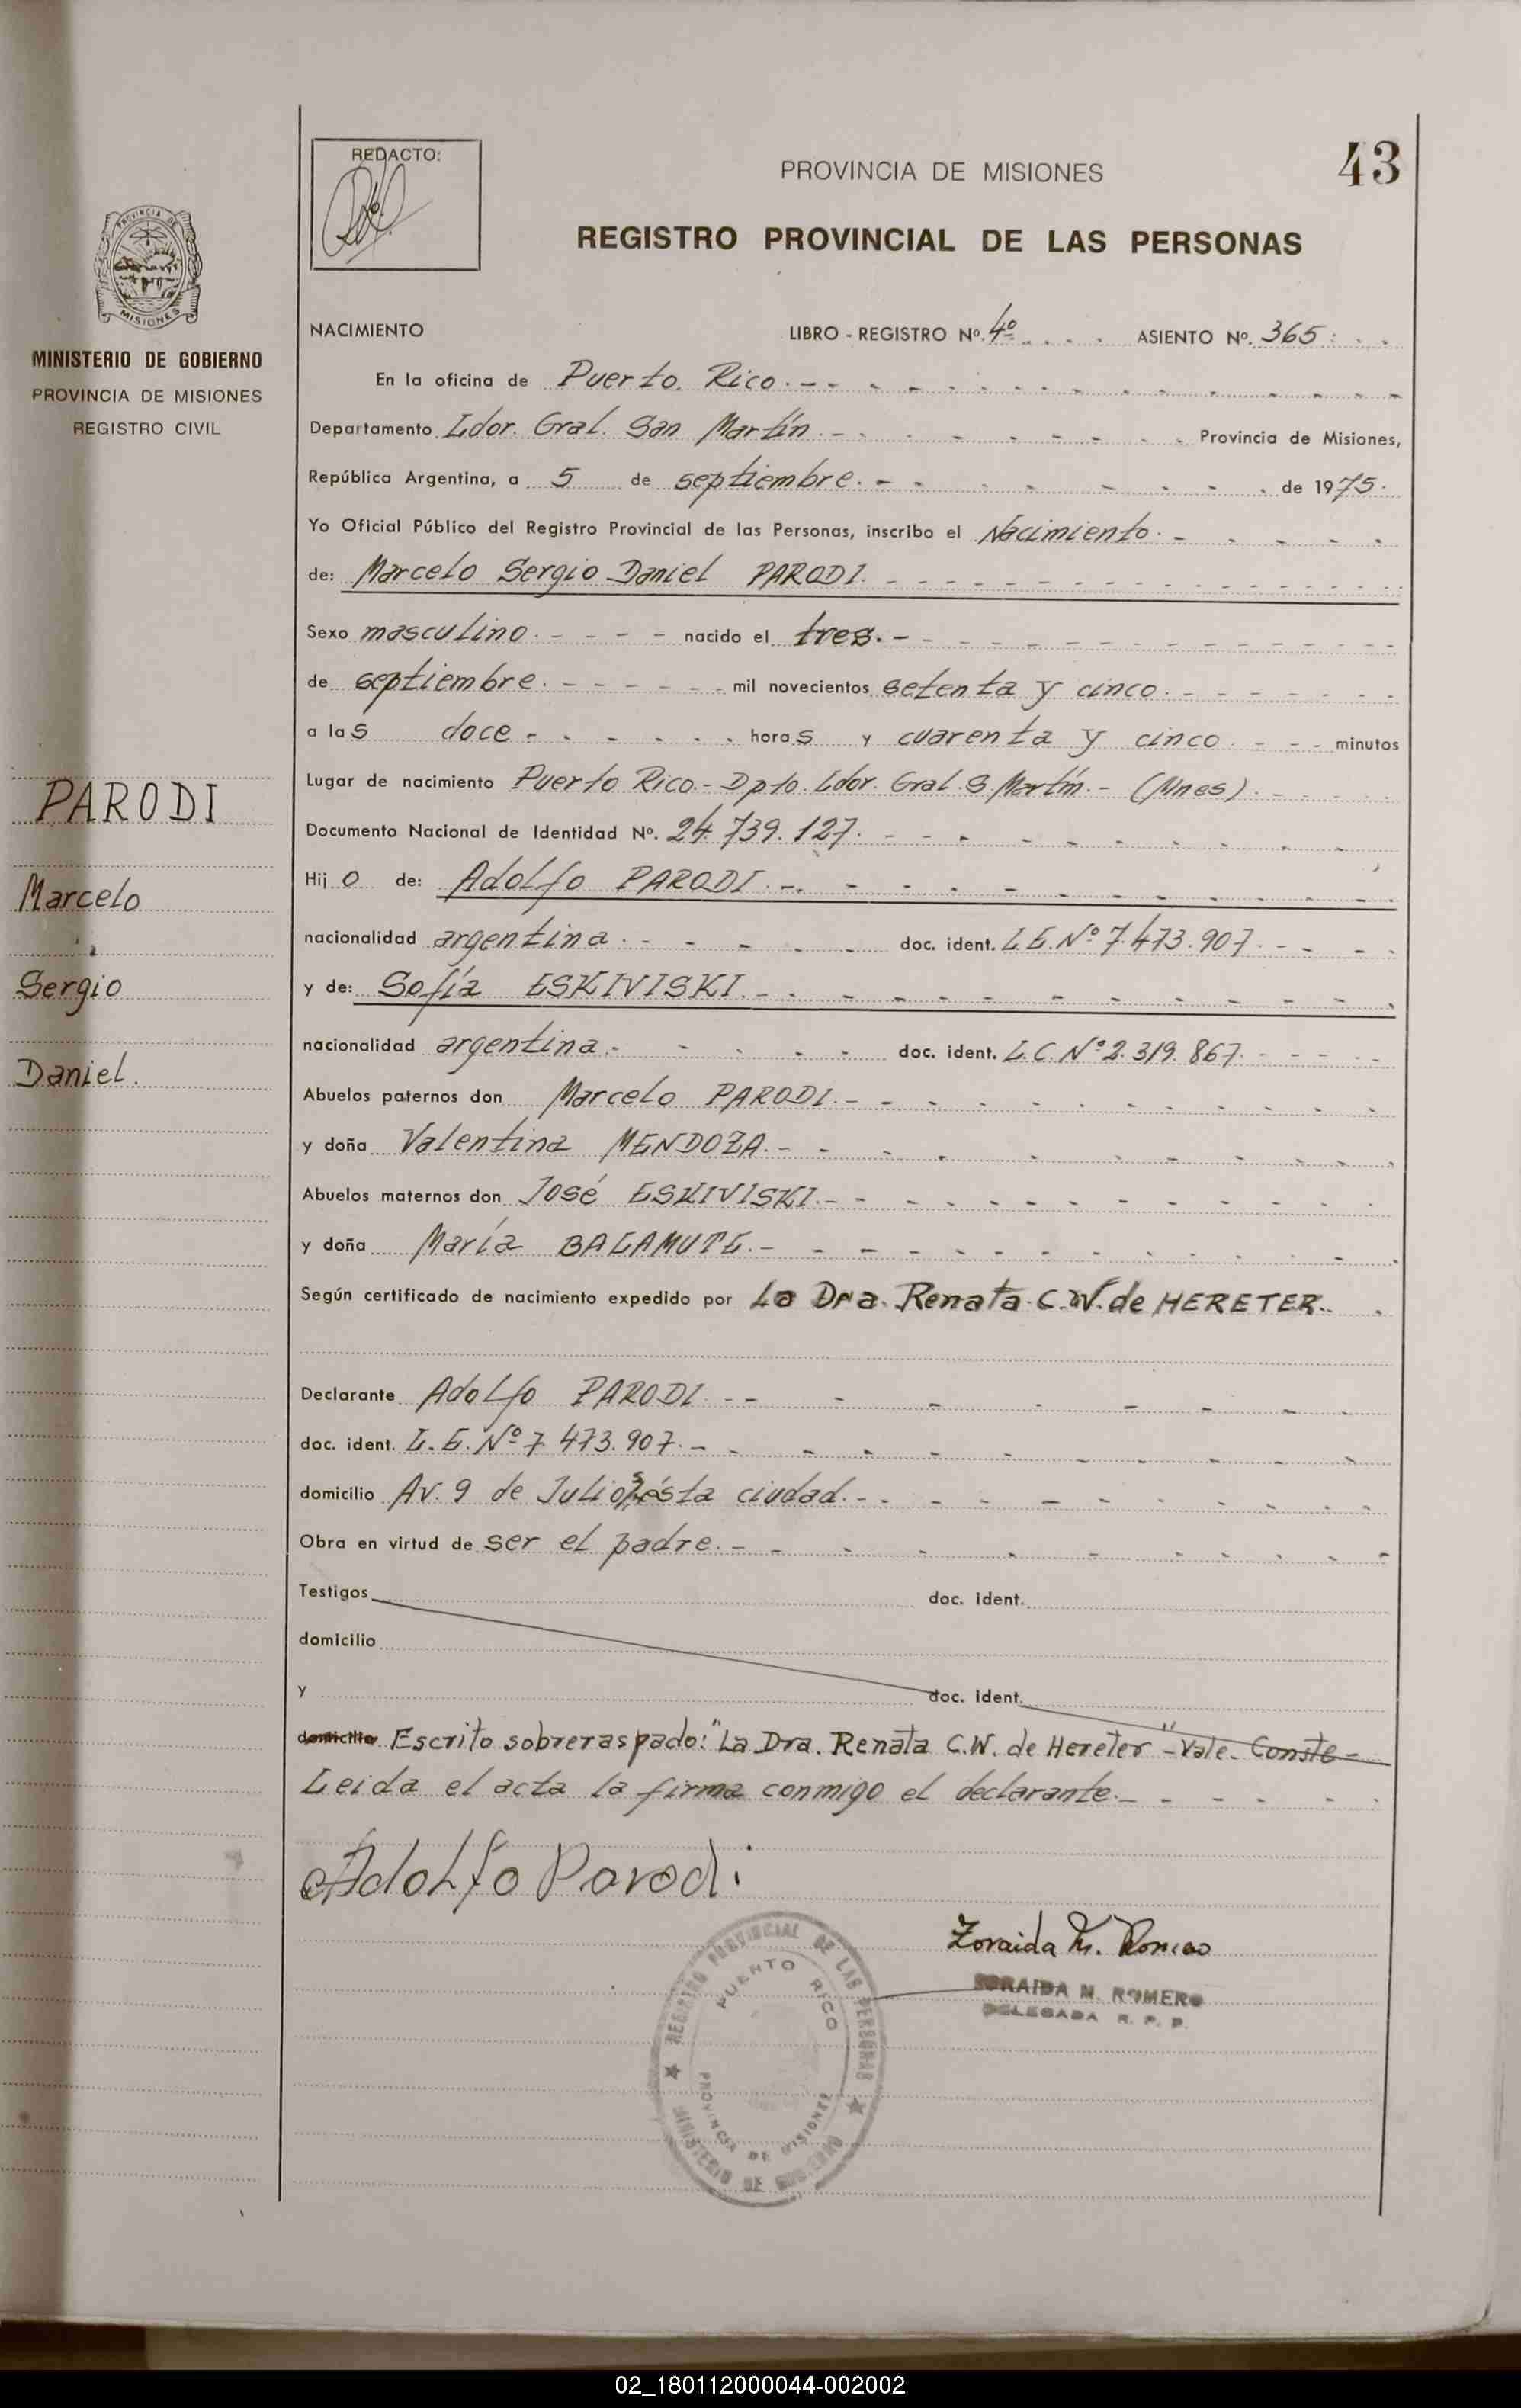 43
REDACTO:
PROVINCIA DE MISIONES
REGISTRO PROVINCIAL DE LAS PERSONAS
PROVINCIA DE
MISIONES
MINISTERIO DE GOBIERNO
PROVINCIA DE MISIONES
REGISTRO CIVIL
PARODI
Marcelo
Sergio
Daniel.
NACIMIENTO LIBRO - REGISTRO Nº. 4º ASIENTO Nº. 365
En la oficina de Puerto Rico.
Departamento Ldor. Gral. San Martín. Provincia de Misiones,
República Argentina, a 5 de septiembre. de 1975.
Yo Oficial Público del Registro Provincial de las Personas, inscribo el Nacimiento.
de: Marcelo Sergio Daniel PARODI.
Sexo masculino. nacido el tres.
de septiembre. mil novecientos setenta y cinco.
a las doce horas y cuarenta y cinco minutos
Lugar de nacimiento Puerto Rico - Dpto. Ldor. Gral. S. Martín. - (Mnes).
Documento Nacional de Identidad Nº. 24.739.127.
Hijo de: Adolfo PARODI.
nacionalidad argentina. doc. ident. L.E. Nº 7.473.907.
y de: Sofía ESKIVISKI.
nacionalidad argentina. doc. ident. L.C. Nº 2.319.867.
Abuelos paternos don Marcelo PARODI.
y doña Valentina MENDOZA.
Abuelos maternos don José ESKIVISKI.
y doña María
Según certificado de nacimiento expedido por La Dra. Renata C.W. de HERETER.
Declarante Adolfo PARODI.
doc. ident. L.E. Nº 7.473.907.
domicilio Av. 9 de Julio ésta ciudad.
Obra en virtud de ser el padre.
Testigos doc. ident.
domicilio
y doc. ident.
domicilio Escrito sobreraspado: "La Dra. Renata C.W. de Hereter" - Vale - Conste -
Leida el acta la firma conmigo el declarante.
Adolfo Parodi
Zoraida M. Romero
ZORAIDA M. ROMERO
DELEGADA R. P. P.
REGISTRO PROVINCIAL DE LAS PERSONAS
PUERTO RICO
PROVINCIA DE MISIONES
MINISTERIO DE GOBIERNO
02_180112000044-002002